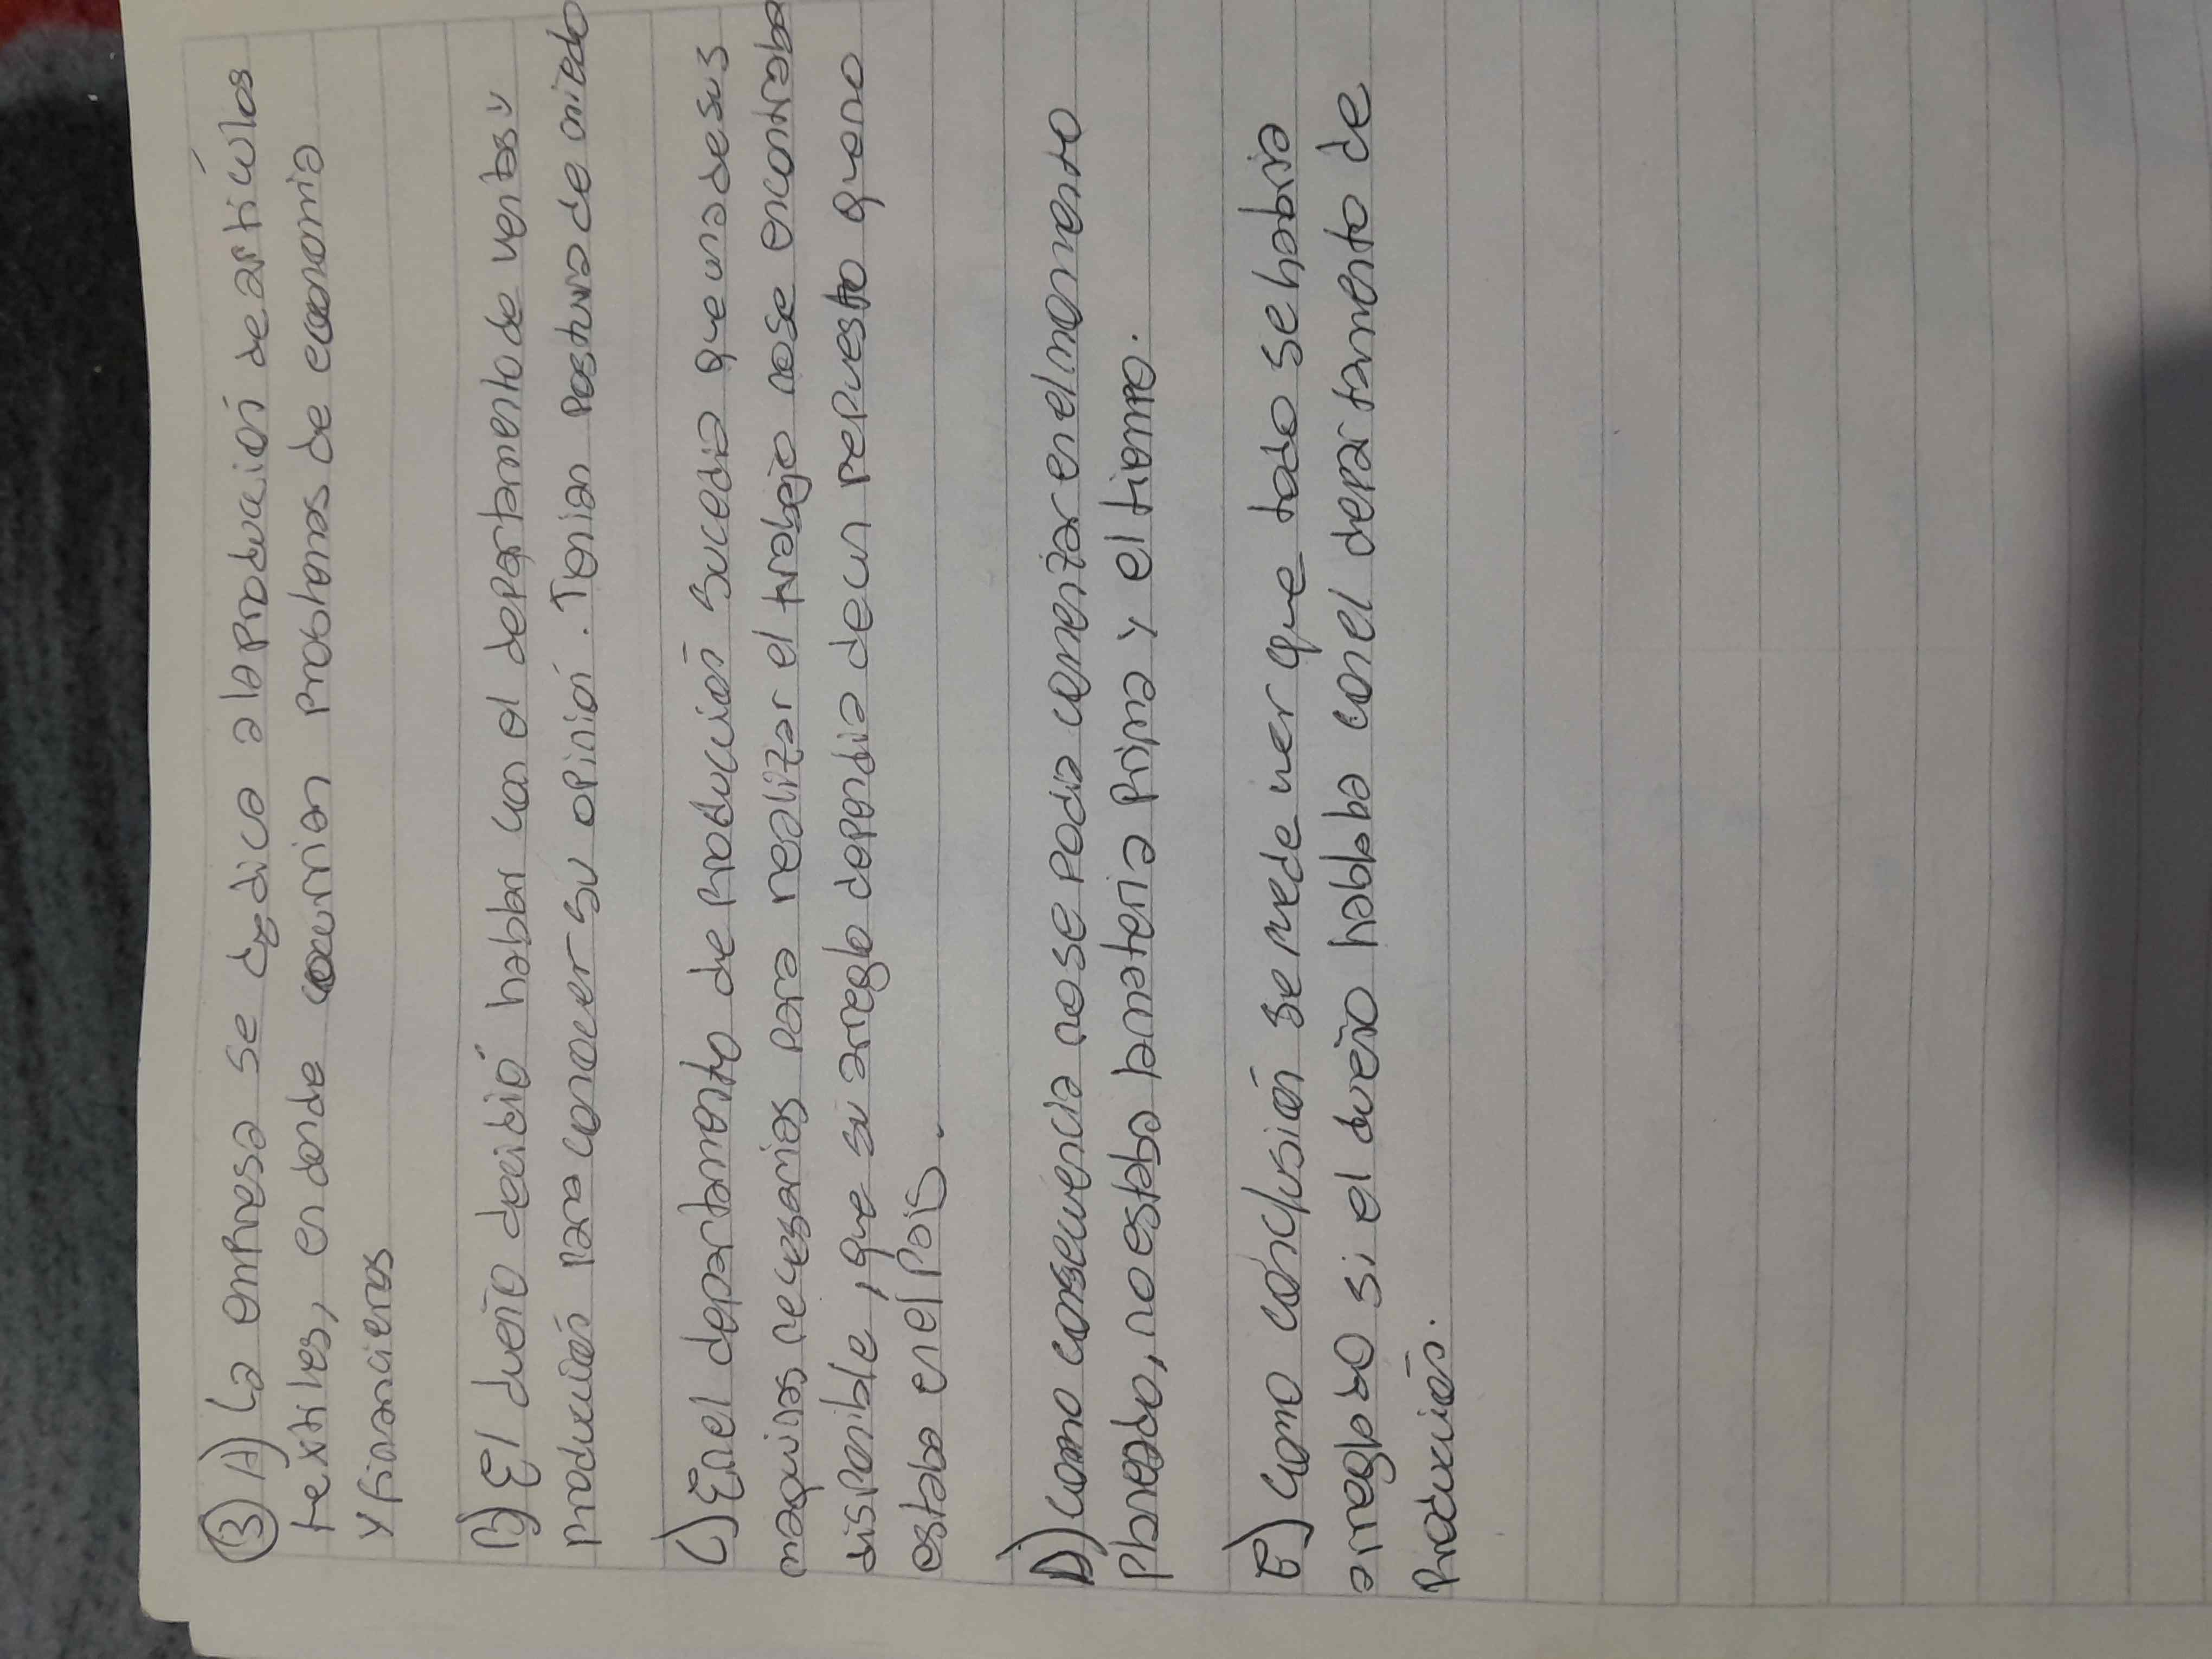 ③ A) La empresa se dedica a la Producción de artículos
textiles, en donde ocurrian problemas de economia
y financieros
B) El dueño decidió hablar con el departamento de ventas y
producción para conocer su opinión. Tenian postura de miedo
C) En el departamento de producción sucedia que una de sus
maquinas necesarias para realizar el trabajo no se encontraba
disponible, que su arreglo dependia de un repuesto que no
estaba en el Pais.
D) Como consecuencia no se podia comenzar en el momento
planeado, no estaba la materia prima y el tiempo.
E) Como conclusión se puede ver que todo se habria
arreglado si el dueño hablaba con el departamento de
Producción.